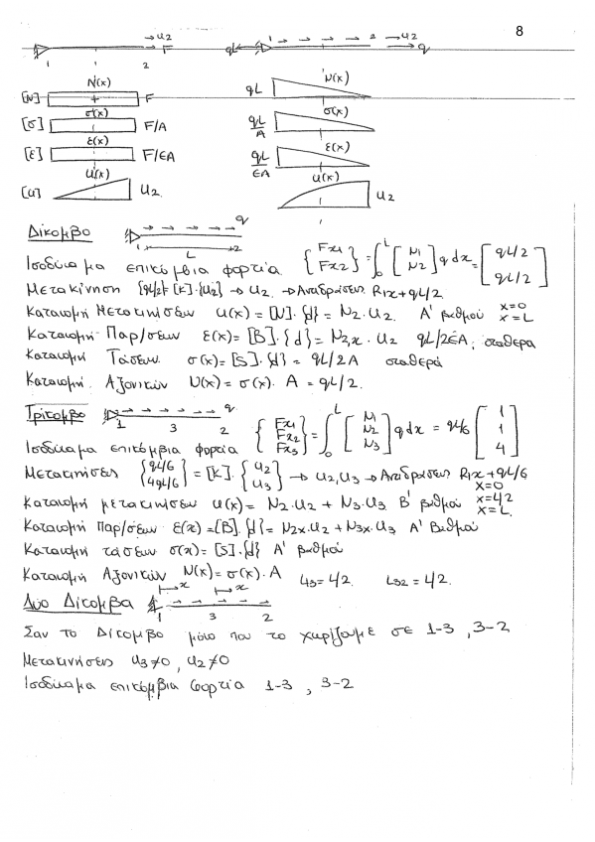 8
→u2 F qL ← 1 → → → → 2 →u2 → q
1 2
N(x) N(x)
[N] + F qL
σ(x) σ(x)
[σ] F/A qL/A
ε(x) ε(x)
[ε] F/EA qL/EA
u(x) u(x)
[u] u2 u2
Δίκομβο 1 → → → → q L 2
Ισοδύναμα επικόμβια φορτία {Fx1 Fx2} = ∫0^L [N1 N2] q dx = [qL/2 qL/2]
Μετακίνηση {qL/2} = [k]·{u2} → u2 → Αντιδράσεις R1x + qL/2
Κατανομή Μετακινήσεων u(x) = [N]·{d} = N2·u2 Α' βαθμού x=0 x=L
Κατανομή Παρ/σεων ε(x) = [B]·{d} = N2,x · u2 qL/2EA, σταθερα
Κατανομή Τάσεων σ(x) = [S]·{d} = qL/2A σταθερά
Κατανομή Αξονικών N(x) = σ(x)· A = qL/2.
Τρίκομβο → → → → q 1 3 2
Ισοδύναμα επικόμβια φορτία {Fx1 Fx2 Fx3} = ∫0^L [N1 N2 N3] q dx = qL/6 [1 1 4]
Μετακινήσεις {qL/6 4qL/6} = [k]·{u2 u3} → u2, u3 → Αντιδράσεις R1x + qL/6
Κατανομή μετακινήσεων u(x) = N2·u2 + N3·u3 Β' βαθμού x=0 x=L/2 x=L
Κατανομή Παρ/σεων ε(x) = [B]·{d} = N2x·u2 + N3x·u3 Α' Βαθμού
Κατανομή τάσεων σ(x) = [S]·{d} Α' βαθμού
Κατανομή Αξονικών N(x) = σ(x)·A L13 = L/2 L32 = L/2.
Δύο Δίκομβα → x → x → → → → 1 3 2
Σαν το Δίκομβο μόνο που το χωρίζαμε σε 1-3 , 3-2
Μετακινήσεις u3≠0, u2≠0
Ισοδύναμα επικόμβια φορτία 1-3 , 3-2